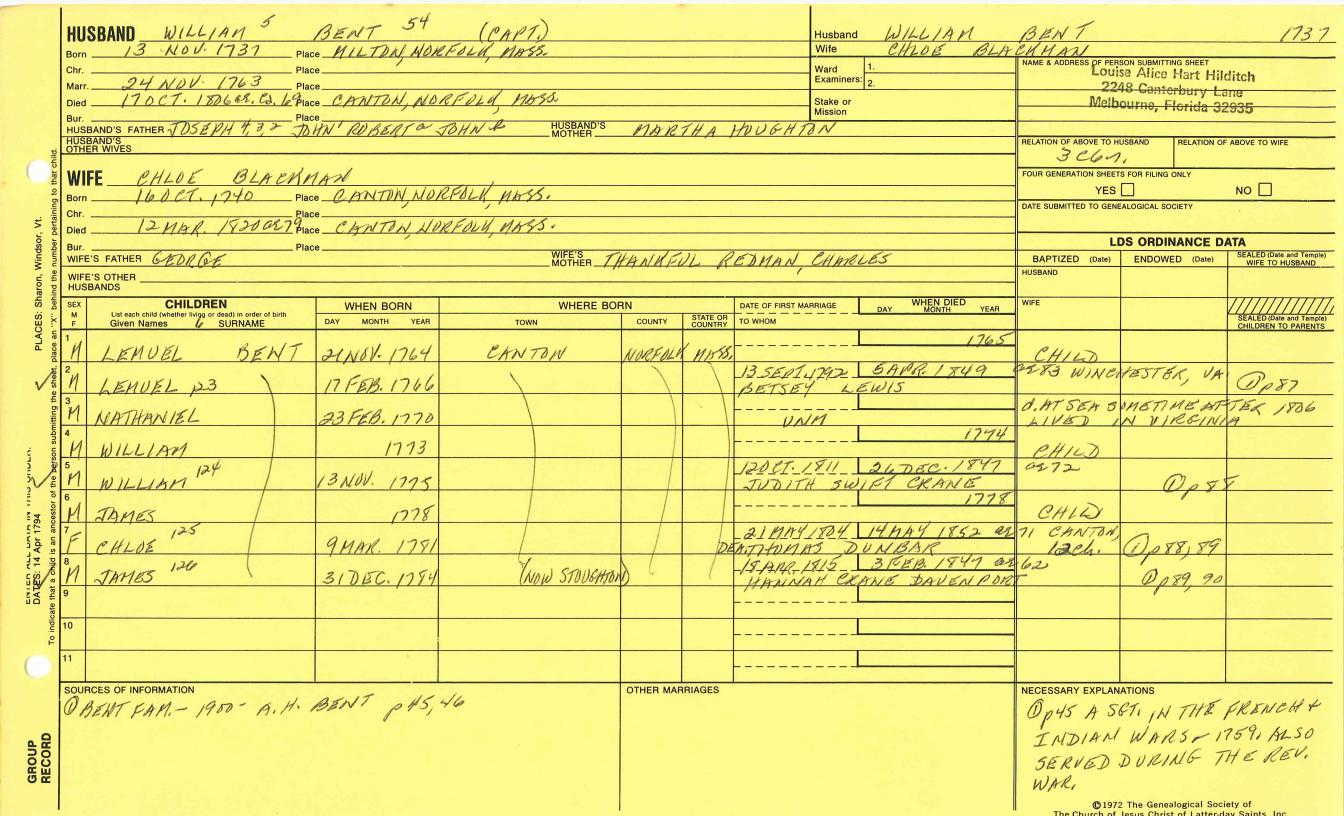 HUSBAND WILLIAM 5 BENT 54 (CAPT.)
Born 13 NOV. 1737 Place MILTON, NORFOLK, MASS.
Chr. Place
Marr. 24 NOV. 1763 Place
Died 17 OCT. 1806 ae. Ca. 69 Place CANTON, NORFOLK, MASS
Bur. Place
HUSBAND'S FATHER JOSEPH 4, 3, 2 JOHN' ROBERT a JOHN B HUSBAND'S MOTHER MARTHA HOUGHTON
HUSBAND'S OTHER WIVES
Husband WILLIAM BENT 1737
Wife CHLOE BLACKMAN
Ward Examiners: 1.
2.
Stake or Mission
NAME & ADDRESS OF PERSON SUBMITTING SHEET
Louise Alice Hart Hilditch
2248 Canterbury Lane
Melbourne, Florida 32935
RELATION OF ABOVE TO HUSBAND RELATION OF ABOVE TO WIFE
3 C6r.
FOUR GENERATION SHEETS FOR FILING ONLY
YES NO
DATE SUBMITTED TO GENEALOGICAL SOCIETY
WIFE CHLOE BLACKMAN
Born 16 OCT. 1740 Place CANTON, NORFOLK, MASS.
Chr. Place
Died 12 MAR. 1820 ae 79 Place CANTON, NORFOLK, MASS.
Bur. Place
WIFE'S FATHER GEORGE WIFE'S MOTHER THANKFUL REDMAN, CHARLES
WIFE'S OTHER HUSBANDS
LDS ORDINANCE DATA
BAPTIZED (Date) ENDOWED (Date) SEALED (Date and Temple) WIFE TO HUSBAND
HUSBAND
WIFE
SEALED (Date and Temple) CHILDREN TO PARENTS
SEX M F CHILDREN WHEN BORN WHERE BORN DATE OF FIRST MARRIAGE WHEN DIED
List each child (whether living or dead) in order of birth
Given Names 6 SURNAME DAY MONTH YEAR TOWN COUNTY STATE OR COUNTRY TO WHOM DAY MONTH YEAR
1 M LEMUEL BENT 21 NOV. 1764 CANTON NORFOLK MASS. 1765 CHILD
2 M LEMUEL 123 17 FEB. 1766 13 SEPT. 1792 5 APR. 1849 ae 83 WINCHESTER, VA.
BETSEY LEWIS ①p87
3 M NATHANIEL 23 FEB. 1770 UNM d. AT SEA SOMETIME AFTER 1806
LIVED IN VIRGINIA
4 M WILLIAM 1773 1774 CHILD
5 M WILLIAM 124 13 NOV. 1775 12 OCT. 1811 26 DEC. 1847 ae 72
JUDITH SWIFT CRANE ①p88
6 M JAMES 1778 1778 CHILD
7 F CHLOE 125 9 MAR. 1781 21 MAY 1804 14 MAY 1852 ae 71 CANTON,
DEA. THOMAS DUNBAR 12ch. ①p88, 89
8 M JAMES 126 31 DEC. 1784 (NOW STOUGHTON) 18 APR. 1815 3 FEB. 1847 ae 62
HANNAH CRANE DAVENPORT ①p89, 90
9
10
11
SOURCES OF INFORMATION
① BENT FAM. - 1900 - A.H. BENT p45, 46
OTHER MARRIAGES
NECESSARY EXPLANATIONS
①p45 A SGT. IN THE FRENCH &
INDIAN WARS - 1759. ALSO
SERVED DURING THE REV.
WAR.
©1972 The Genealogical Society of
The Church of Jesus Christ of Latter-day Saints, Inc.
PLACES: Sharon, Windsor, Vt.
DATES: 14 Apr 1794
ENTER ALL DATA IN THIS ORDER:
To indicate that a child is an ancestor of the person submitting the sheet, place an "X" behind the number pertaining to that child.
GROUP RECORD